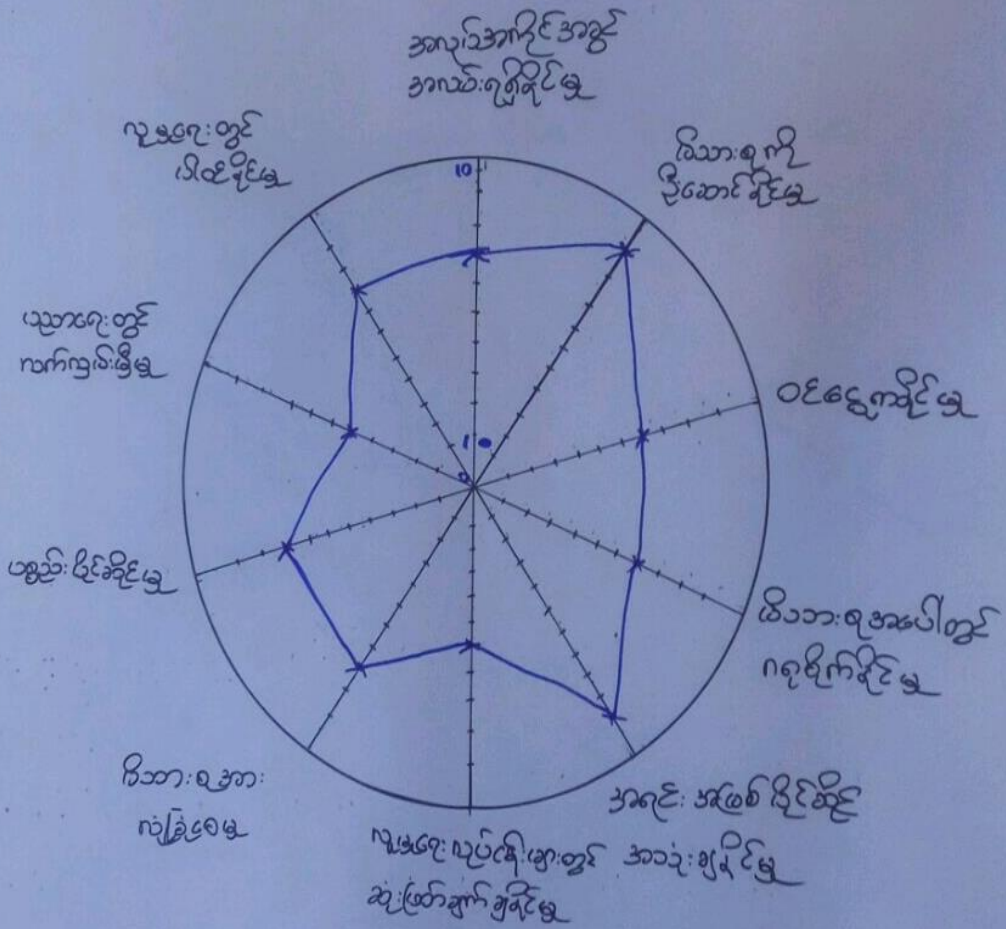 အလုပ်အကိုင်အခွင့်
အလမ်းရရှိနိုင်မှု
မိသားစုကို
ဦးဆောင်နိုင်မှု
ဝင်ငွေကနိုင်မှု
မိသားစုအပေါ်တွင်
ဂရုစိုက်နိုင်မှု
အရင်းအမြစ်ပိုင်ဆိုင်
အသုံးချနိုင်မှု
လူမှုရေးလုပ်ငန်းများတွင်
ဆုံးဖြတ်ချက်ချနိုင်မှု
မိသားစုအား
လုံခြုံစေမှု
ပစ္စည်းပိုင်ဆိုင်မှု
ပညာရေးတွင်
လက်လှမ်းမှီမှု
လူမှုရေးတွင်
ပါဝင်နိုင်မှု
10
1
0